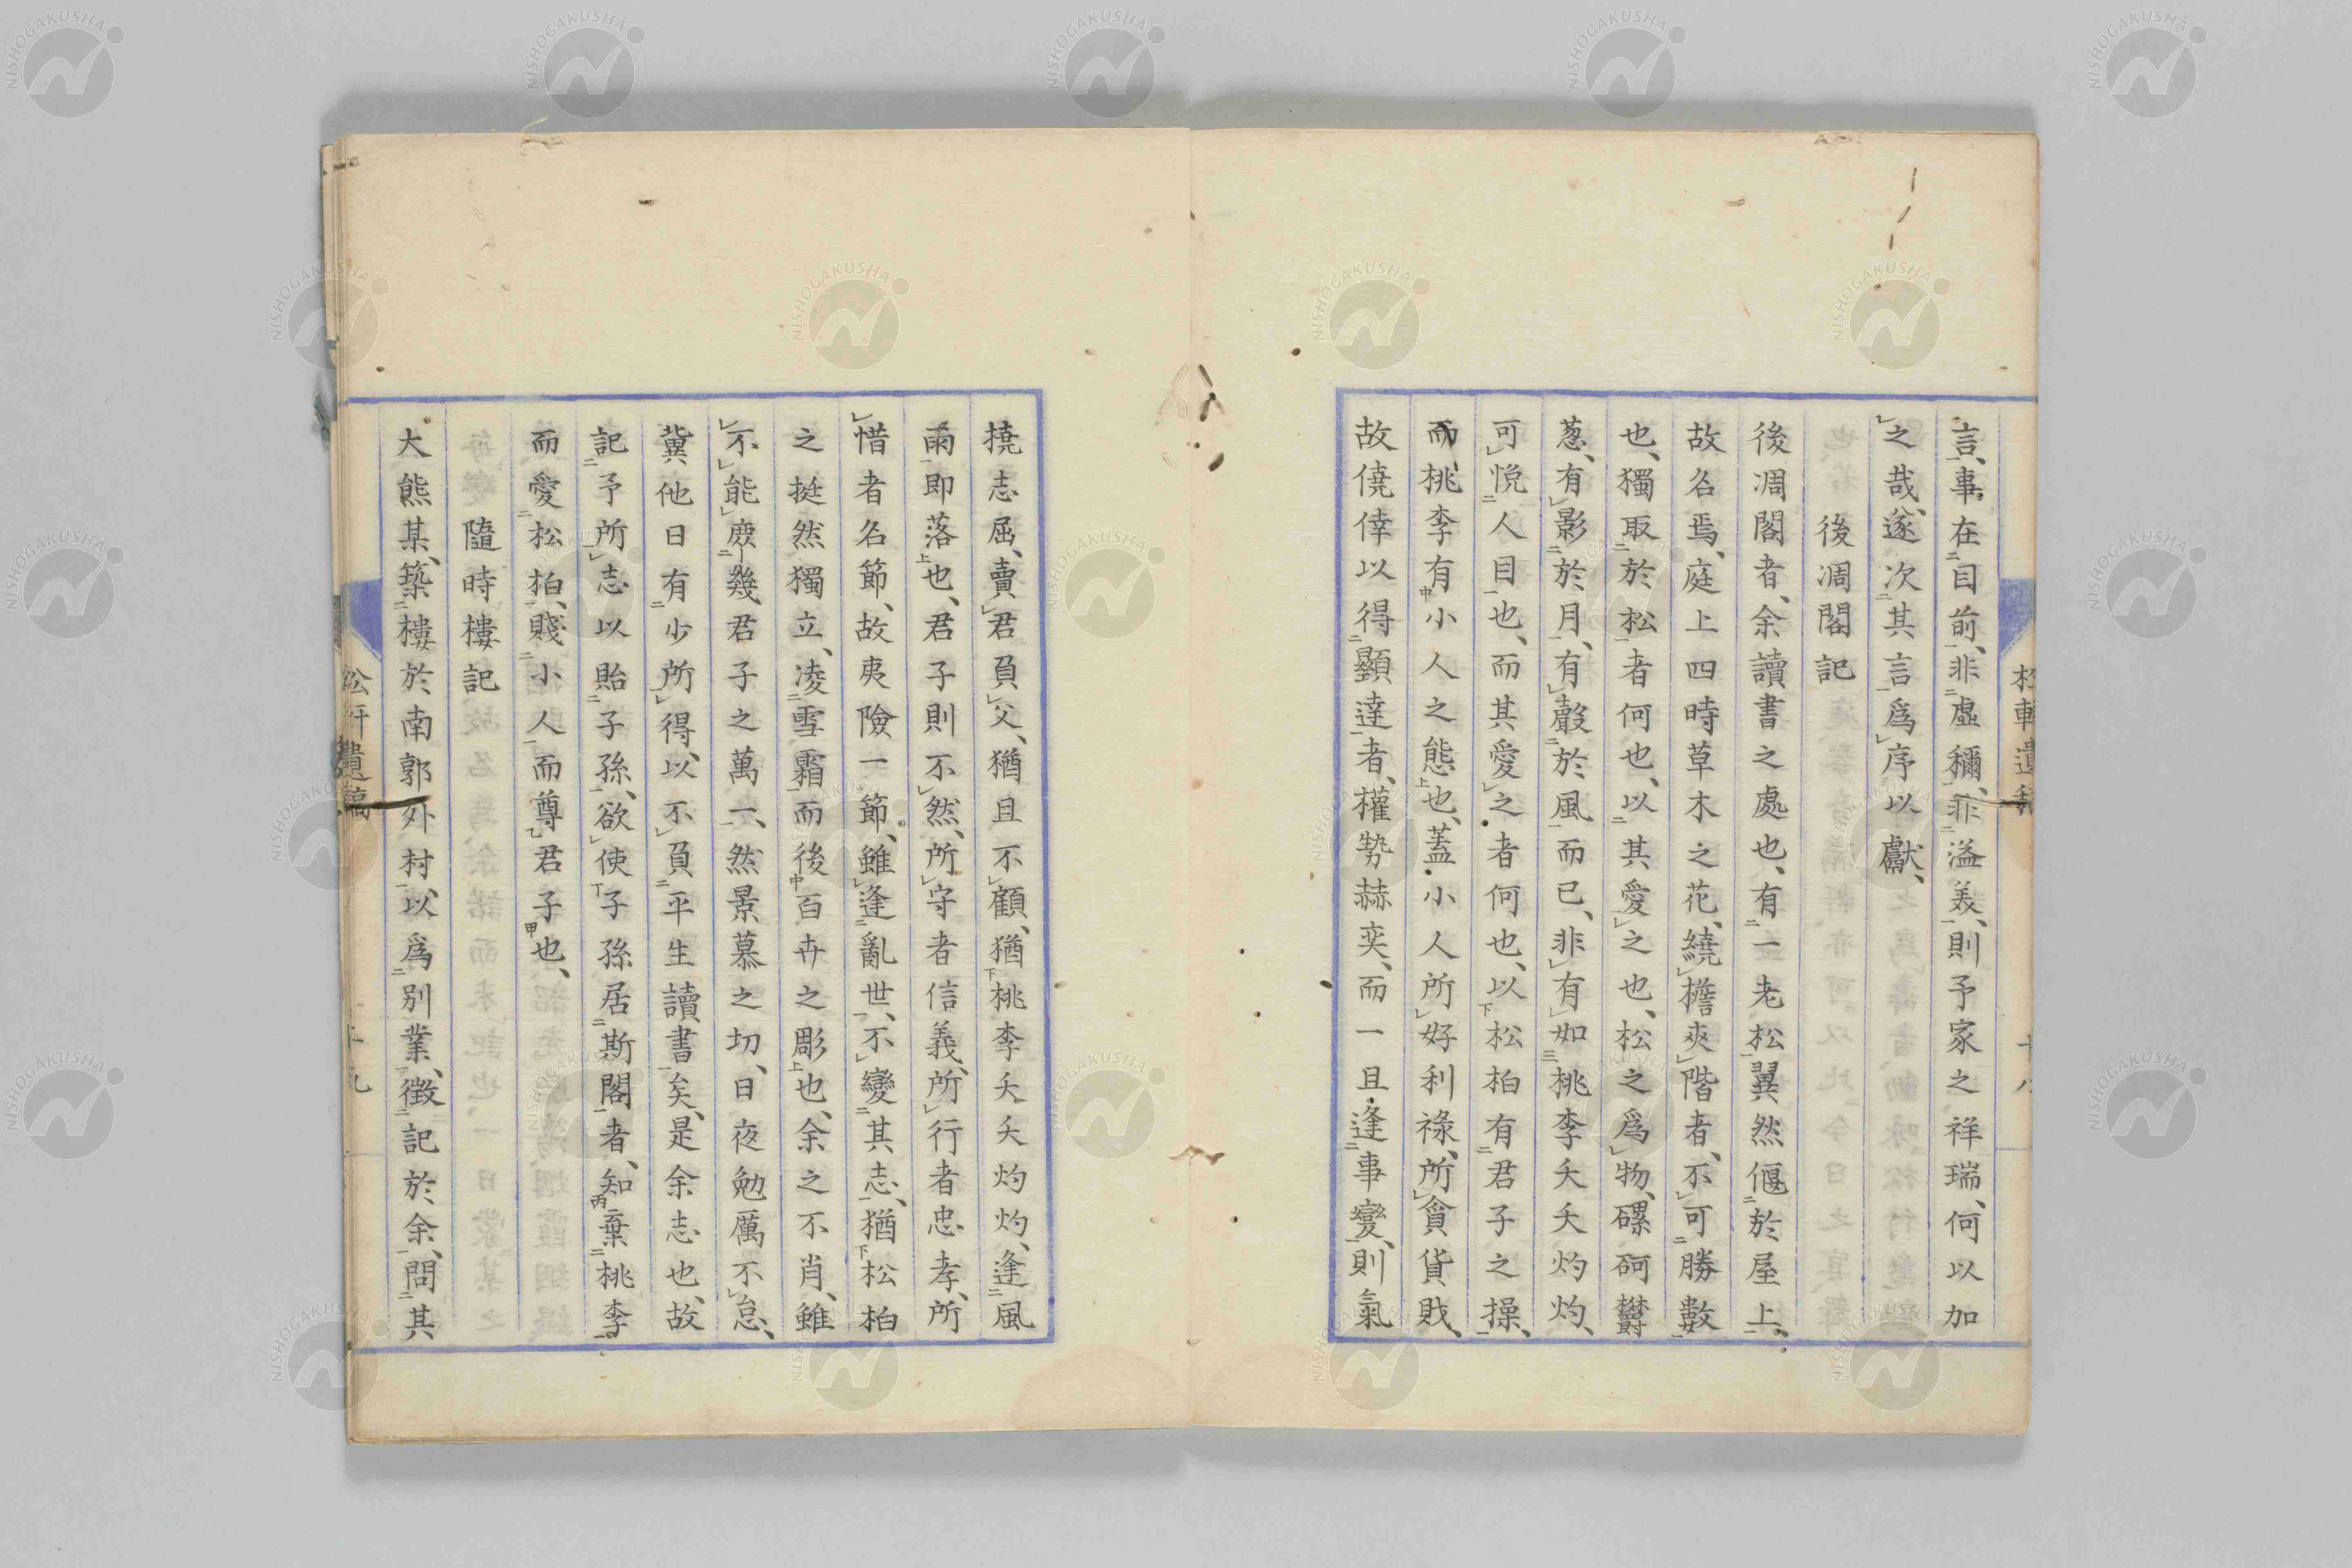 言、事在目前、非虛稱、非溢美、則予家之祥瑞、何以加
之哉、遂次其言爲序以獻、
後凋閣記
後凋閣者、余讀書之處也、有一老松翼然偃於屋上、
故名焉、庭上四時草木之花、繞檐夾階者、不可勝數
也、獨取於松者何也、以其愛之也、松之爲物、磥砢鬱
葱、有影於月、有聲於風而已、非有如桃李夭夭灼灼、
可悅人目也、而其愛之者何也、以松柏有君子之操、
而桃李有小人之態也、蓋小人所好利祿、所貪貨財、
故僥倖以得顯達者、權勢赫奕、而一旦逢事變、則氣
撓志屈、賣君負父、猶且不顧、猶桃李夭夭灼灼、逢風
雨即落也、君子則不然、所守者信義、所行者忠孝、所
惜者名節、故夷險一節、雖逢亂世、不變其志、猶松柏
之挺然獨立、凌雪霜而後百卉之彫也、余之不肖、雖
不能庶幾君子之萬一、然景慕之切、日夜勉厲不怠、
冀他日有少所得、以不負平生讀書矣、是余志也、故
記予所志以貽子孫、欲使子孫居斯閣者、知棄桃李
而愛松柏、賤小人而尊君子也、
隨時樓記
大熊某、築樓於南郭外村、以爲別業、徵記於余、問其
松軒遺稿